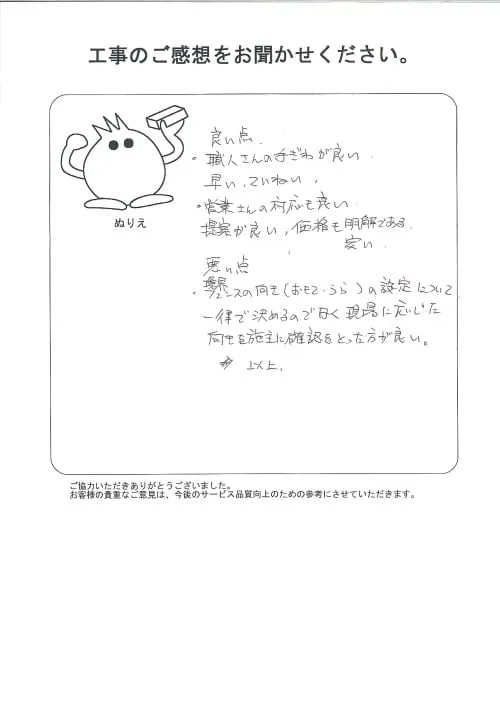 工事のご感想をお聞かせください。
ぬりえ
良い点
・職人さんの手ぎわが良い
早い、ていねい、
・営業さんの対応も良い
提案が良い、価格も明解である
安い
悪い点
・境界フェンスの向き(おもて・うら)の設定について
一律で決めるので無く現場に応じた
向きを施主に確認をとった方が良い。
以上、
ご協力いただきありがとうございました。
お客様の貴重なご意見は、今後のサービス品質向上のための参考にさせていただきます。